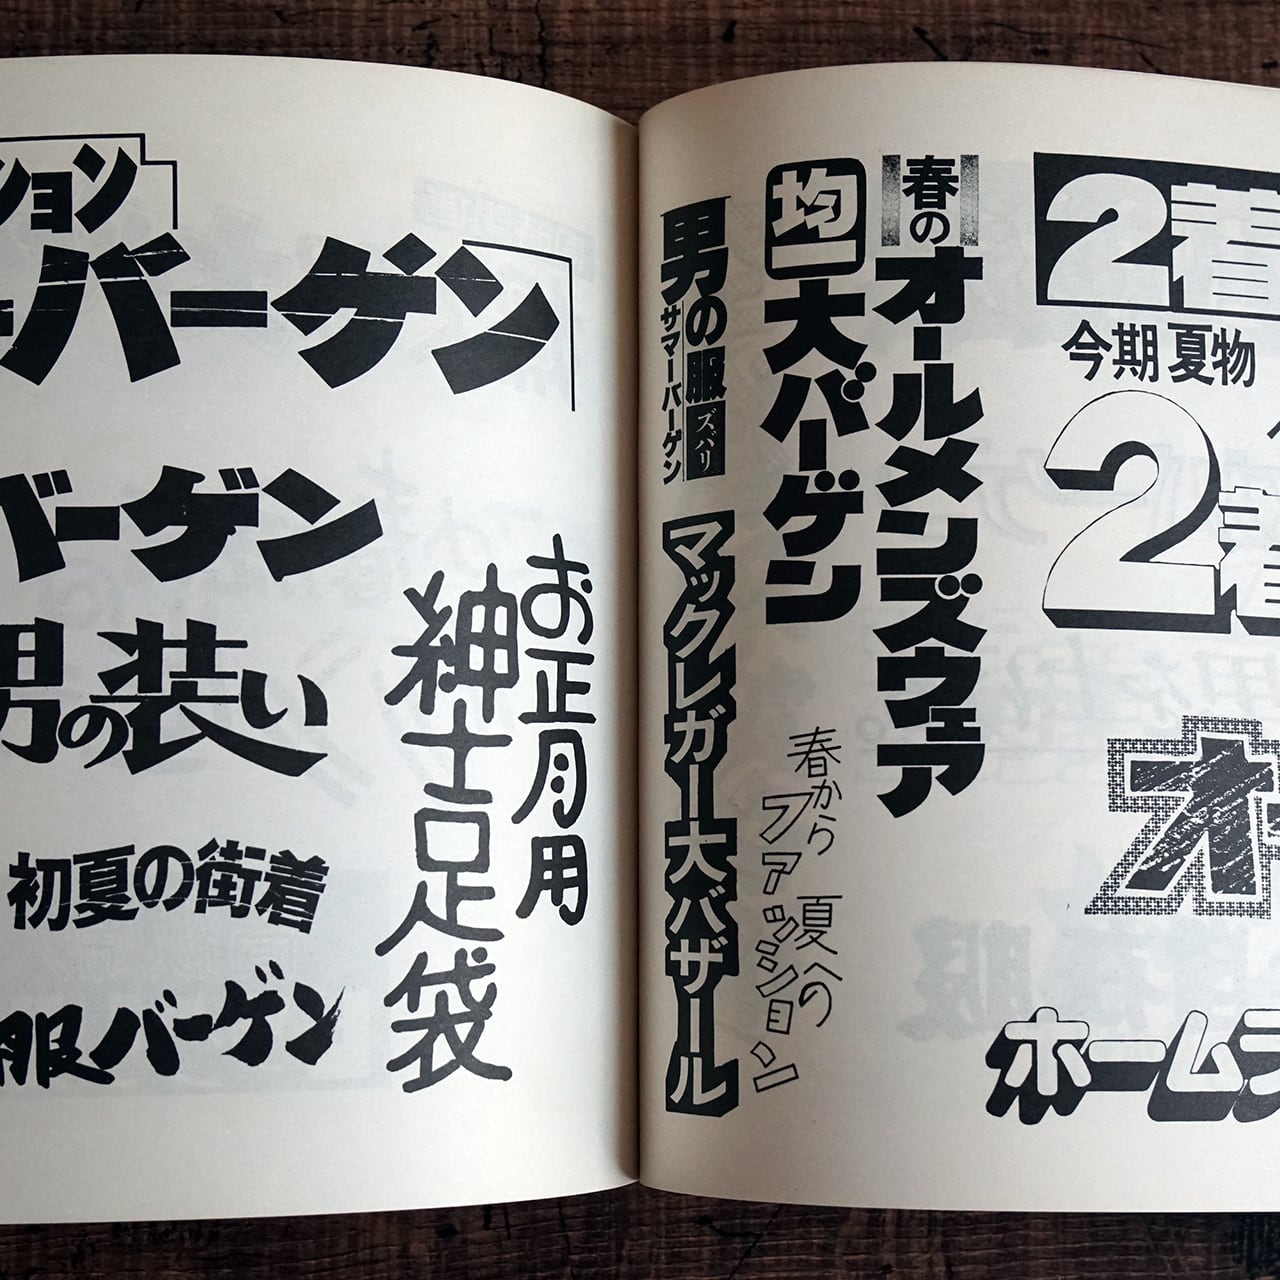 ション
バーゲン
バーゲン
男の装い
初夏の街着
服バーゲン
お正月用
紳士足袋
2着
今期 夏物
2着
オ
ホームフ
春の
オールメンズウェア
均一
大バーゲン
春から 夏への
ファッション
男の服 ズバリ
サマーバーゲン
マックレガー大バザール